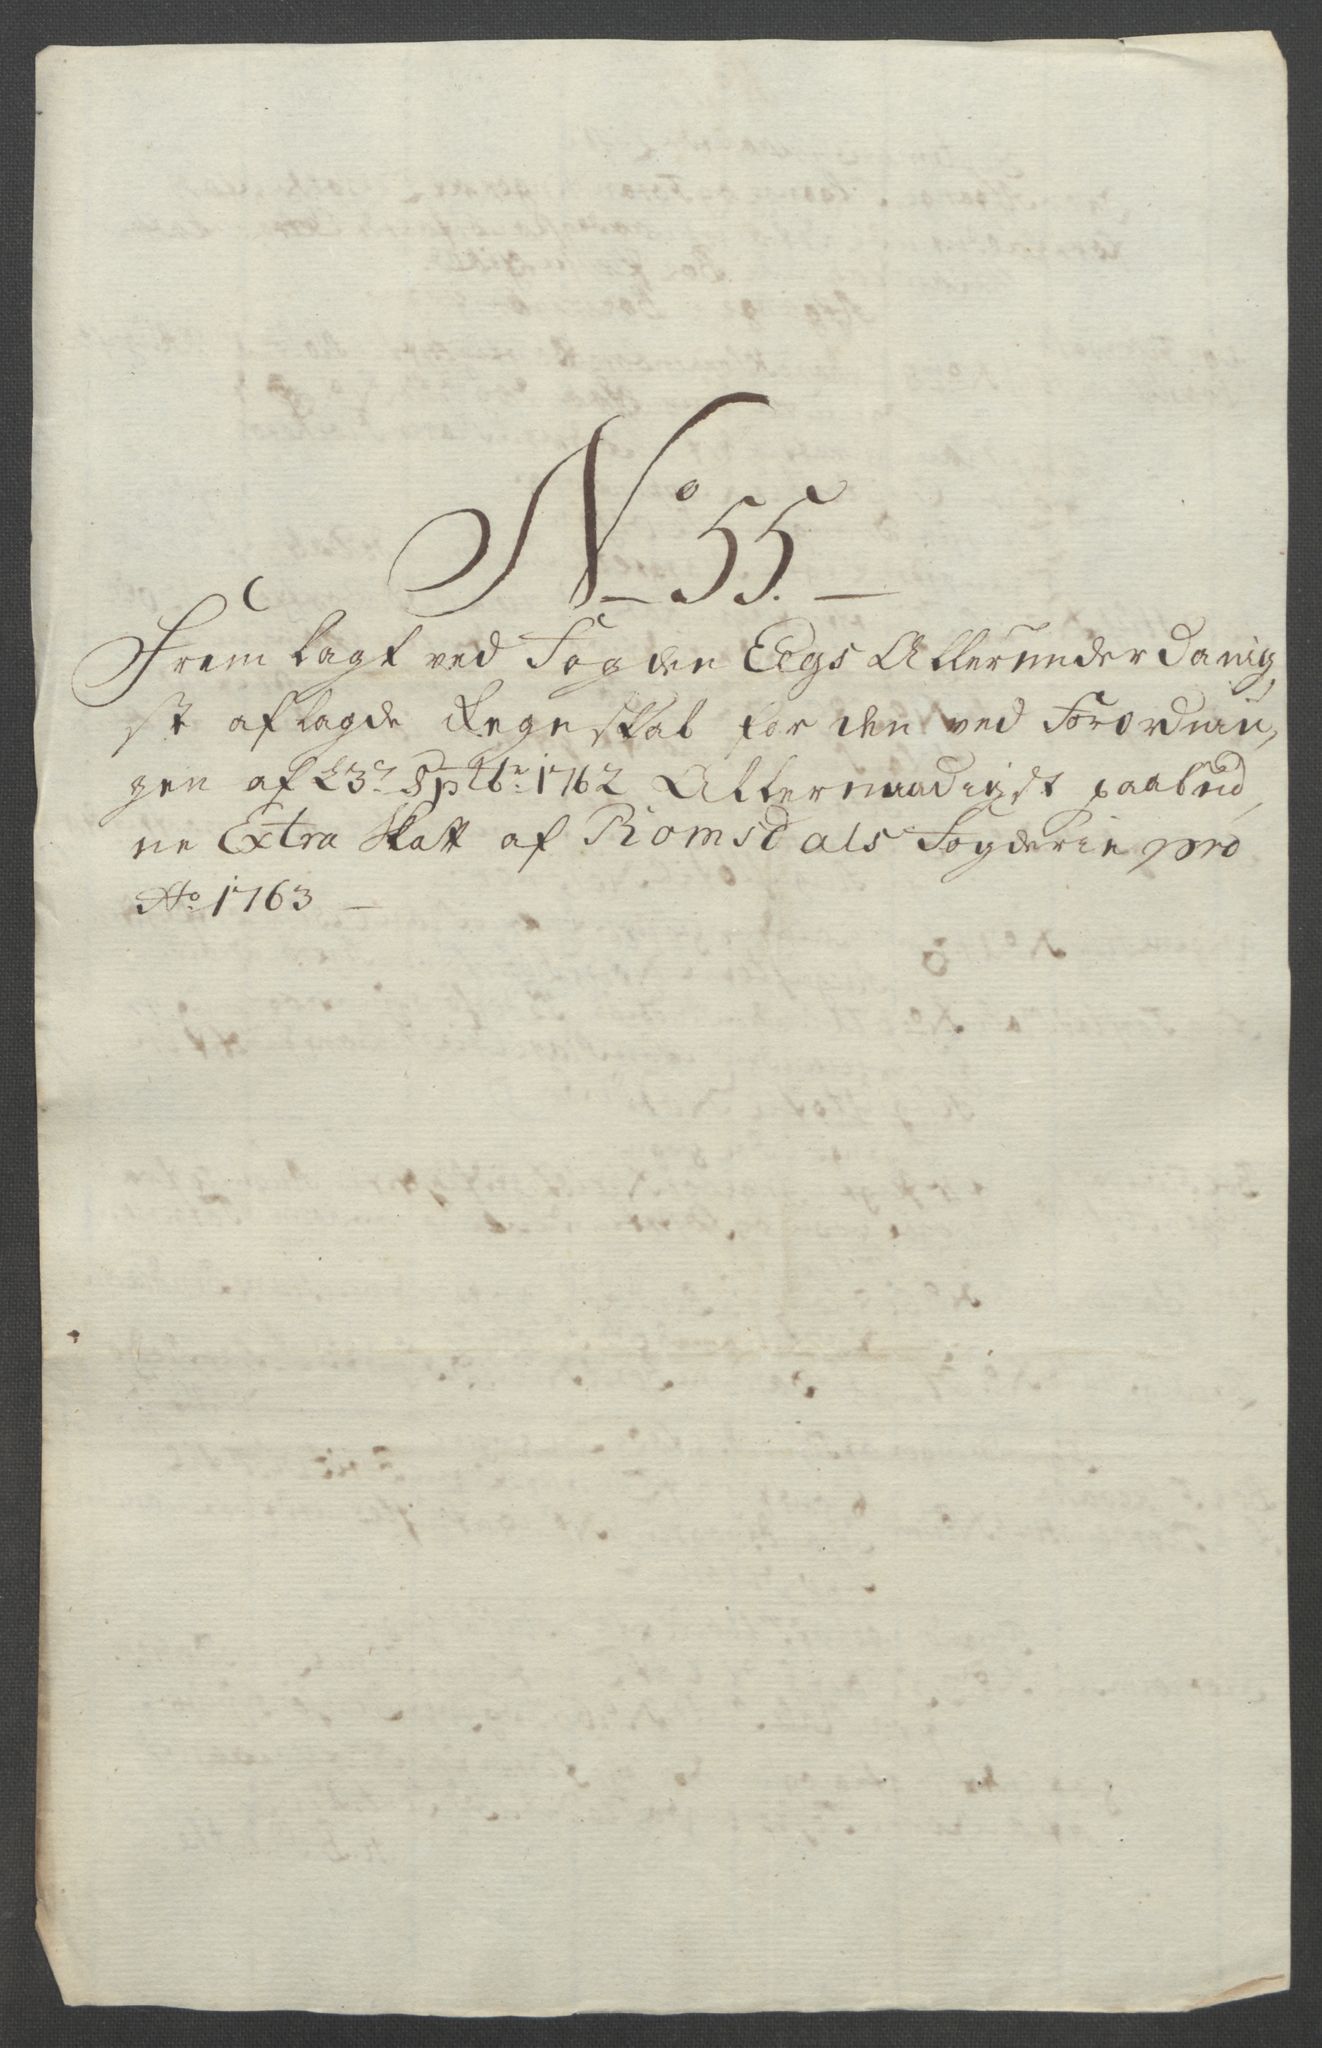 No 55.
Frem lagt ved Fogden Eegs Allerunderdanig,
st aflagde Regeskab for den ved Forordnin,
gen af 23de Sptbr: 1762 Allernaadigst paabud,
ne Extra Skatt af Romsdals Fogderie pro
Ao: 1763